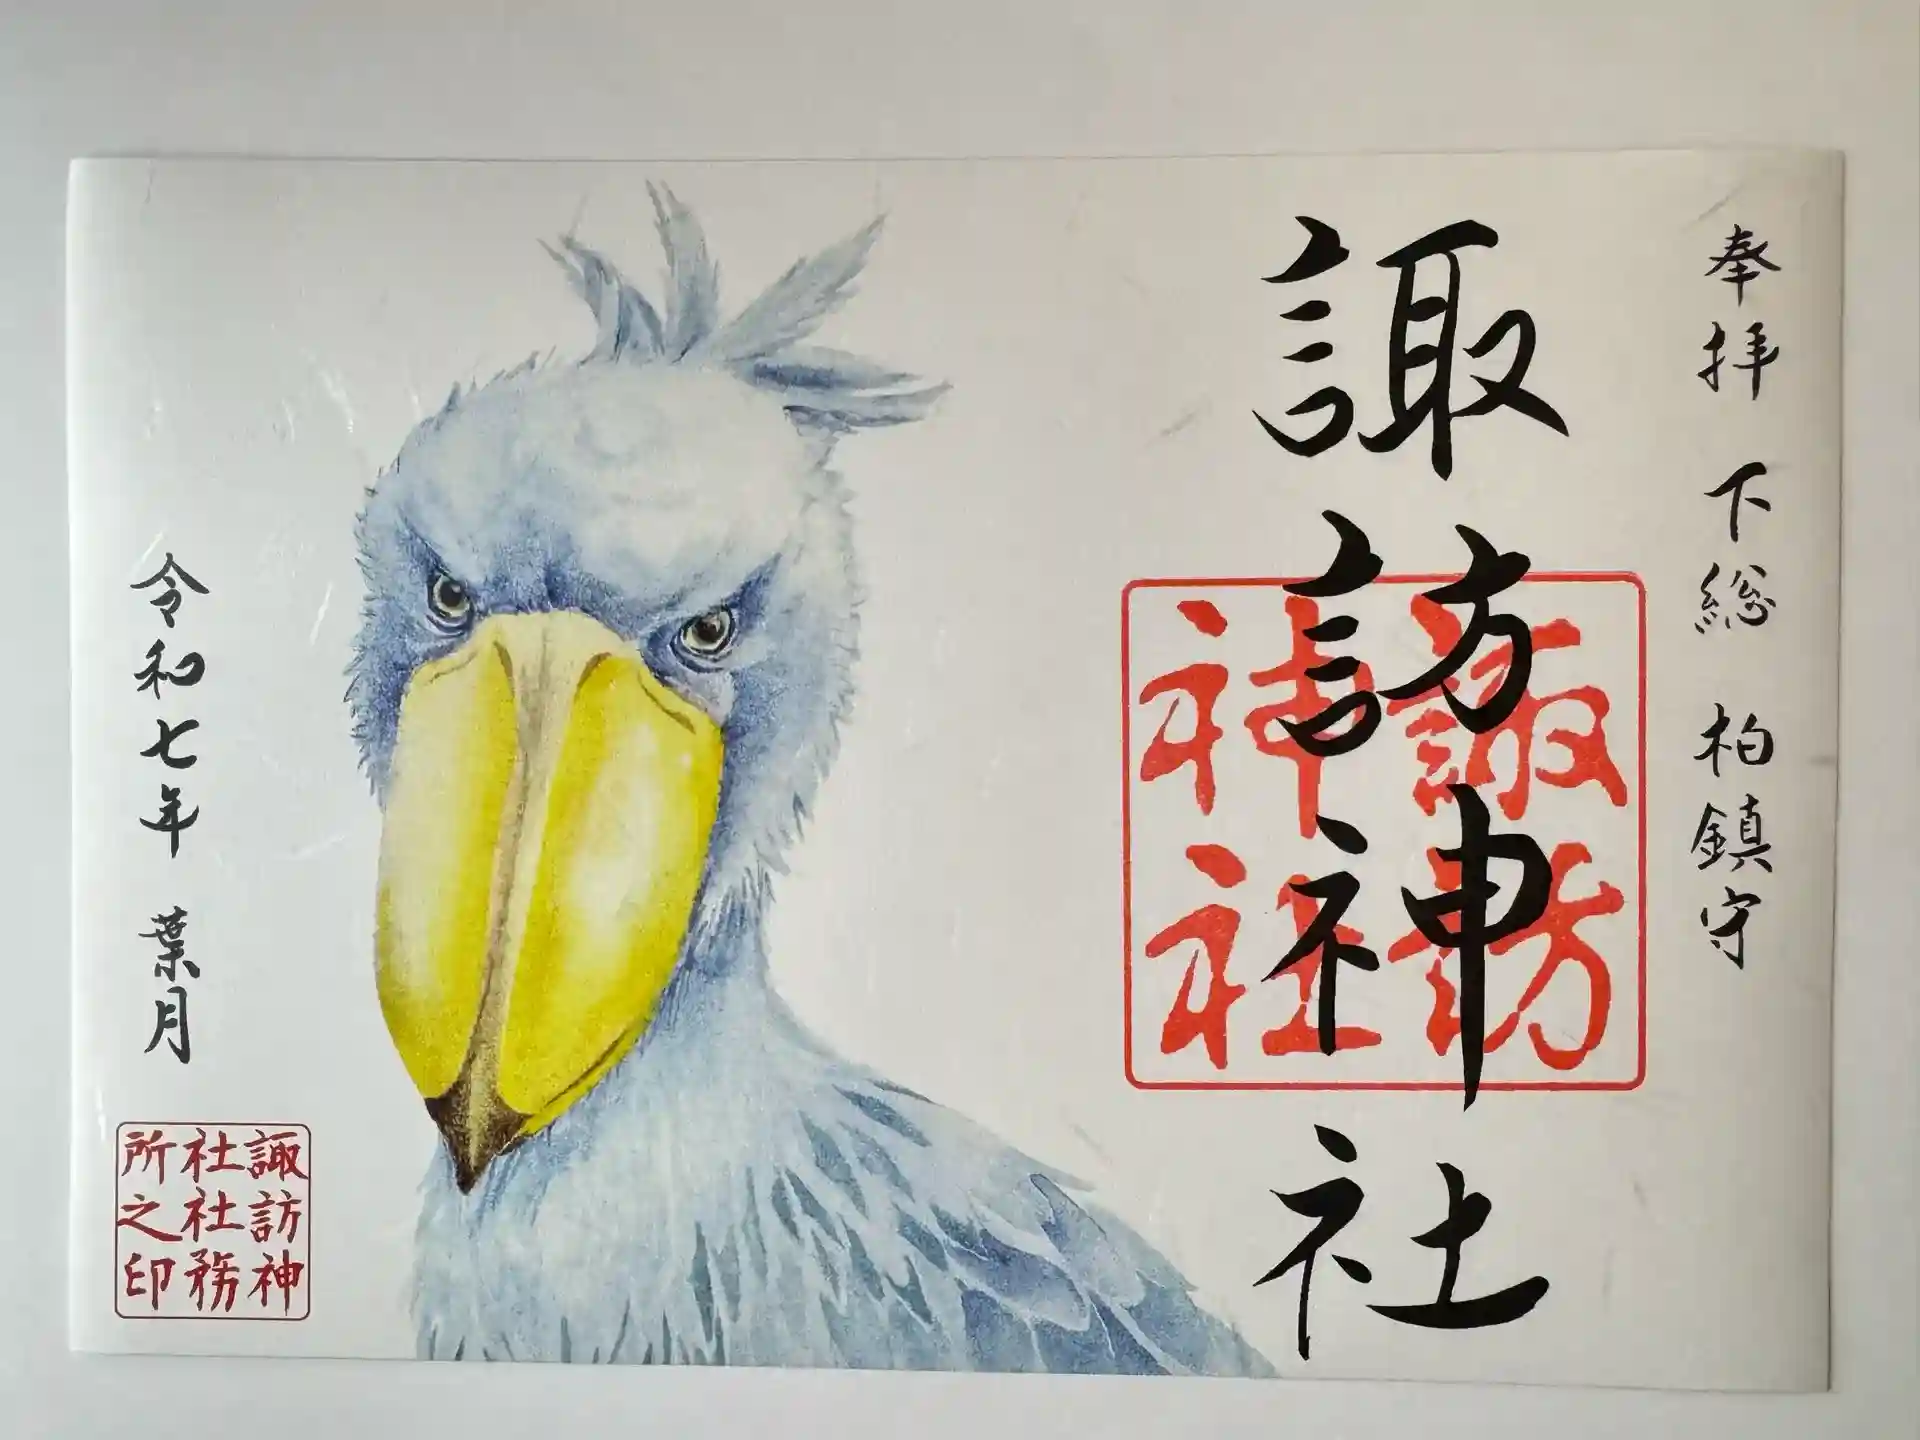 奉拝 下総 柏鎮守
諏訪神社
諏訪
神社
令和七年 葉月
諏訪神
社社務
所之印